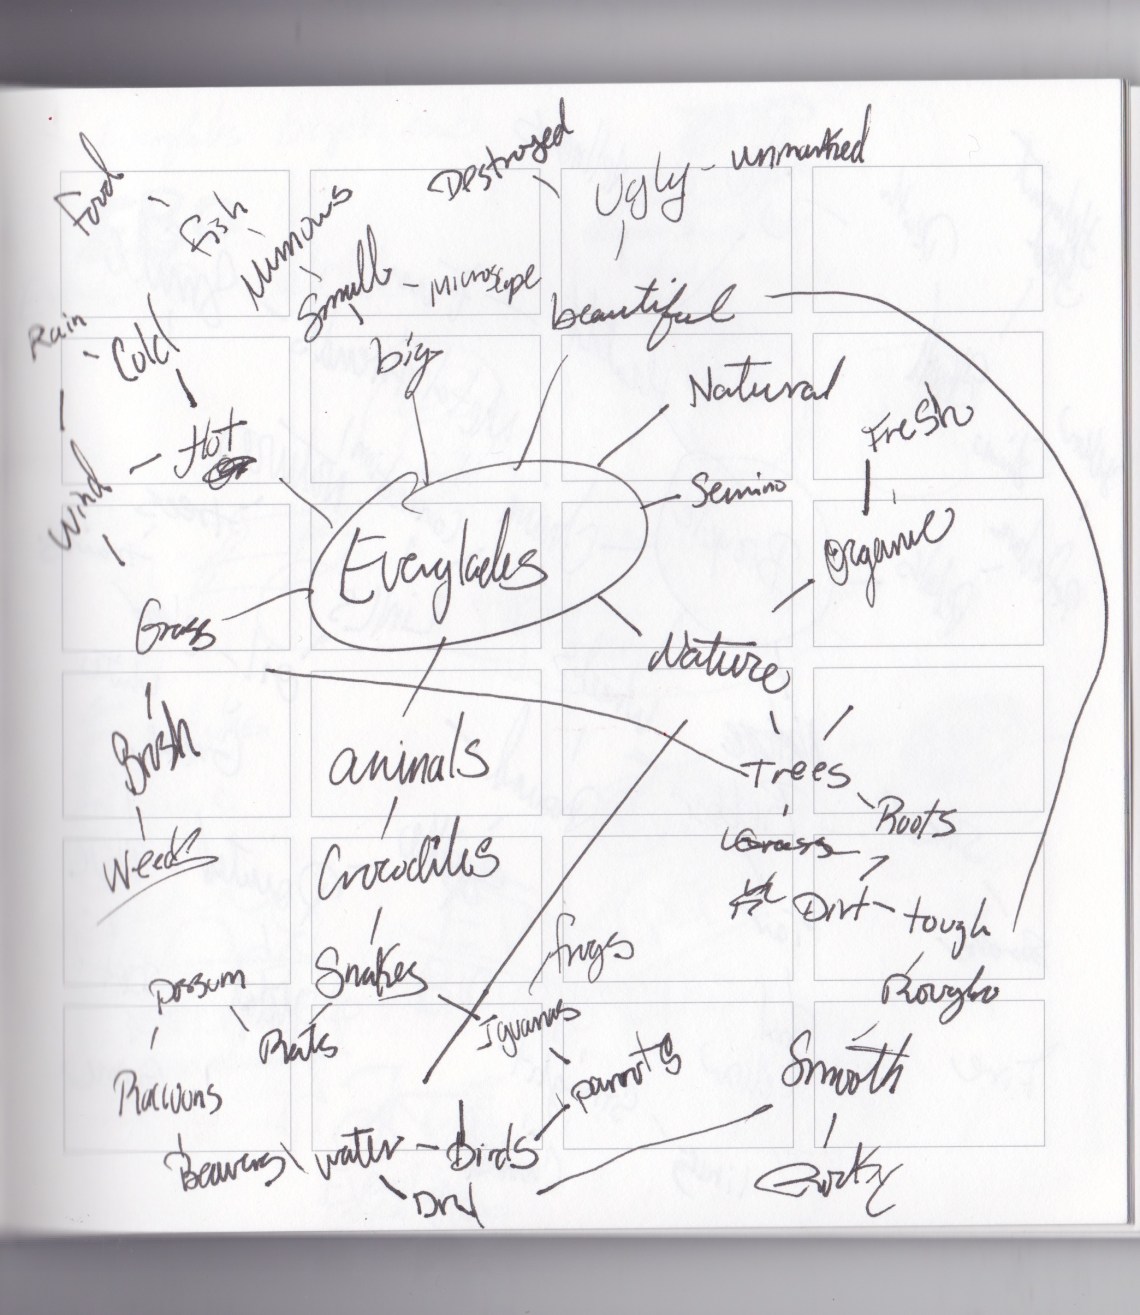 Destroyed
Ugly - unmarked
Food
Fish
Minnows
Small - Microscope
beautiful
Rain
Cold
big
Natural
Fresh
Hot
Semino
Wind
Organic
Everglades
Grass
Nature
Brush
animals
Trees
Roots
Weeds
Crocodiles
Grass
Dirt - tough
frogs
Snakes
possum
Rough
Iguanas
Rats
parrots
Smooth
Racoons
Beavers
water - Birds
Dry
Rocky